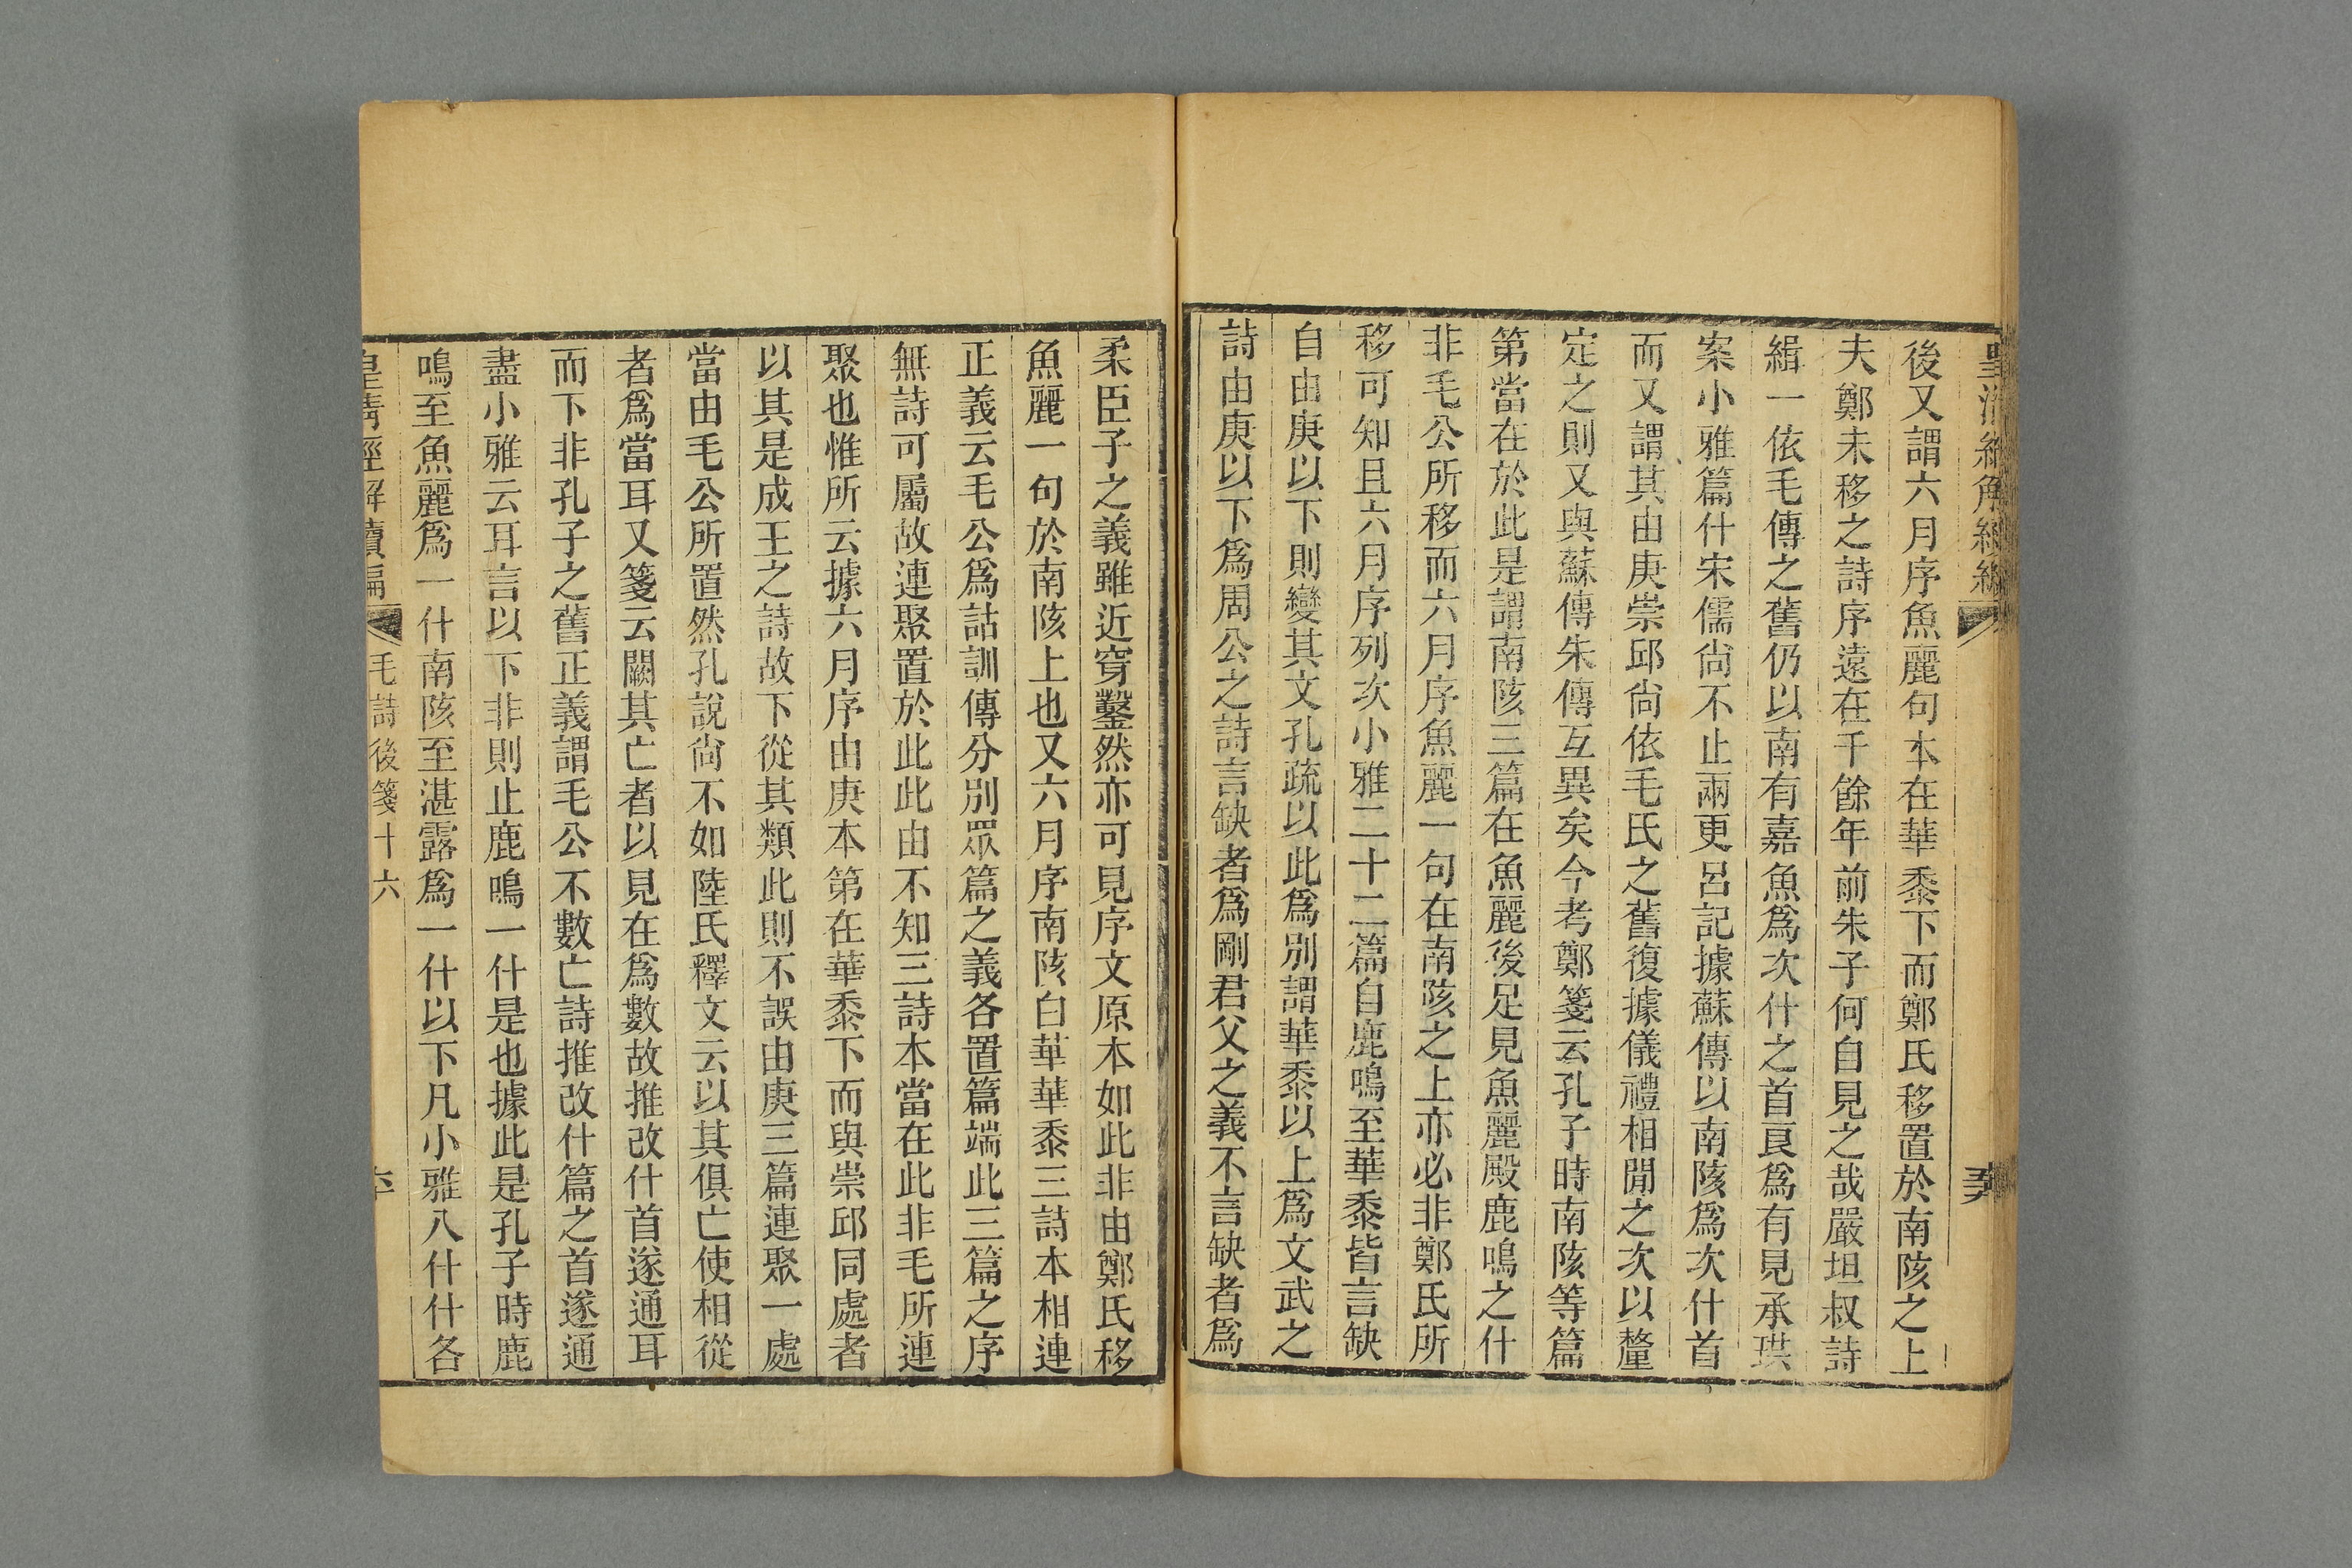 後又謂六月序魚麗句本在華黍下而鄭氏移置於南陔之上
夫鄭未移之詩序遠在千餘年前朱子何自見之哉嚴坦叔詩
緝一依毛傳之舊仍以南有嘉魚爲次什之首良爲有見承珙
案小雅篇什宋儒尙不止兩更呂記據蘇傳以南陔爲次什首
而又謂其由庚崇邱尙依毛氏之舊復據儀禮相閒之次以釐
定之則又與蘇傳朱傳互異矣今考鄭箋云孔子時南陔等篇
第當在於此是謂南陔三篇在魚麗後足見魚麗殿鹿鳴之什
非毛公所移而六月序魚麗一句在南陔之上亦必非鄭氏所
移可知且六月序列次小雅二十二篇自鹿鳴至華黍皆言缺
自由庚以下則變其文孔疏以此爲別謂華黍以上爲文武之
詩由庚以下爲周公之詩言缺者爲剛君父之義不言缺者爲
柔臣子之義雖近穿鑿然亦可見序文原本如此非由鄭氏移
魚麗一句於南陔上也又六月序南陔白華華黍三詩本相連
正義云毛公爲詁訓傳分別眾篇之義各置篇端此三篇之序
無詩可屬故連聚置於此此由不知三詩本當在此非毛所連
聚也惟所云據六月序由庚本第在華黍下而與崇邱同處者
以其是成王之詩故下從其類此則不誤由庚三篇連聚一處
當由毛公所置然孔說尙不如陸氏釋文云以其俱亡使相從
者爲當耳又箋云闕其亡者以見在爲數故推改什首遂通耳
而下非孔子之舊正義謂毛公不數亡詩推改什篇之首遂通
盡小雅云耳言以下非則止鹿鳴一什是也據此是孔子時鹿
鳴至魚麗爲一什南陔至湛露爲一什以下凡小雅八什什各
皇清經解續編 毛詩後箋十六